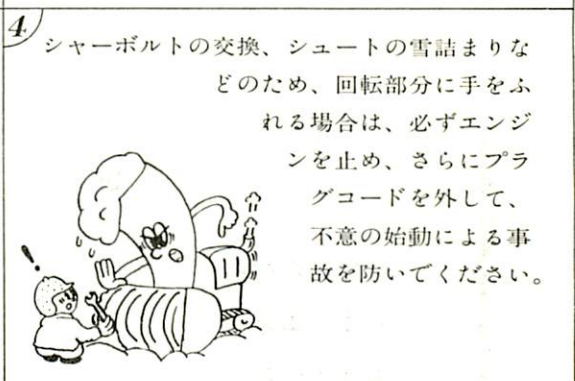 4
シャーボルトの交換、シュートの雪詰まりな
どのため、回転部分に手をふ
れる場合は、必ずエンジ
ンを止め、さらにプラ
グコードを外して、
不意の始動による事
故を防いでください。
!